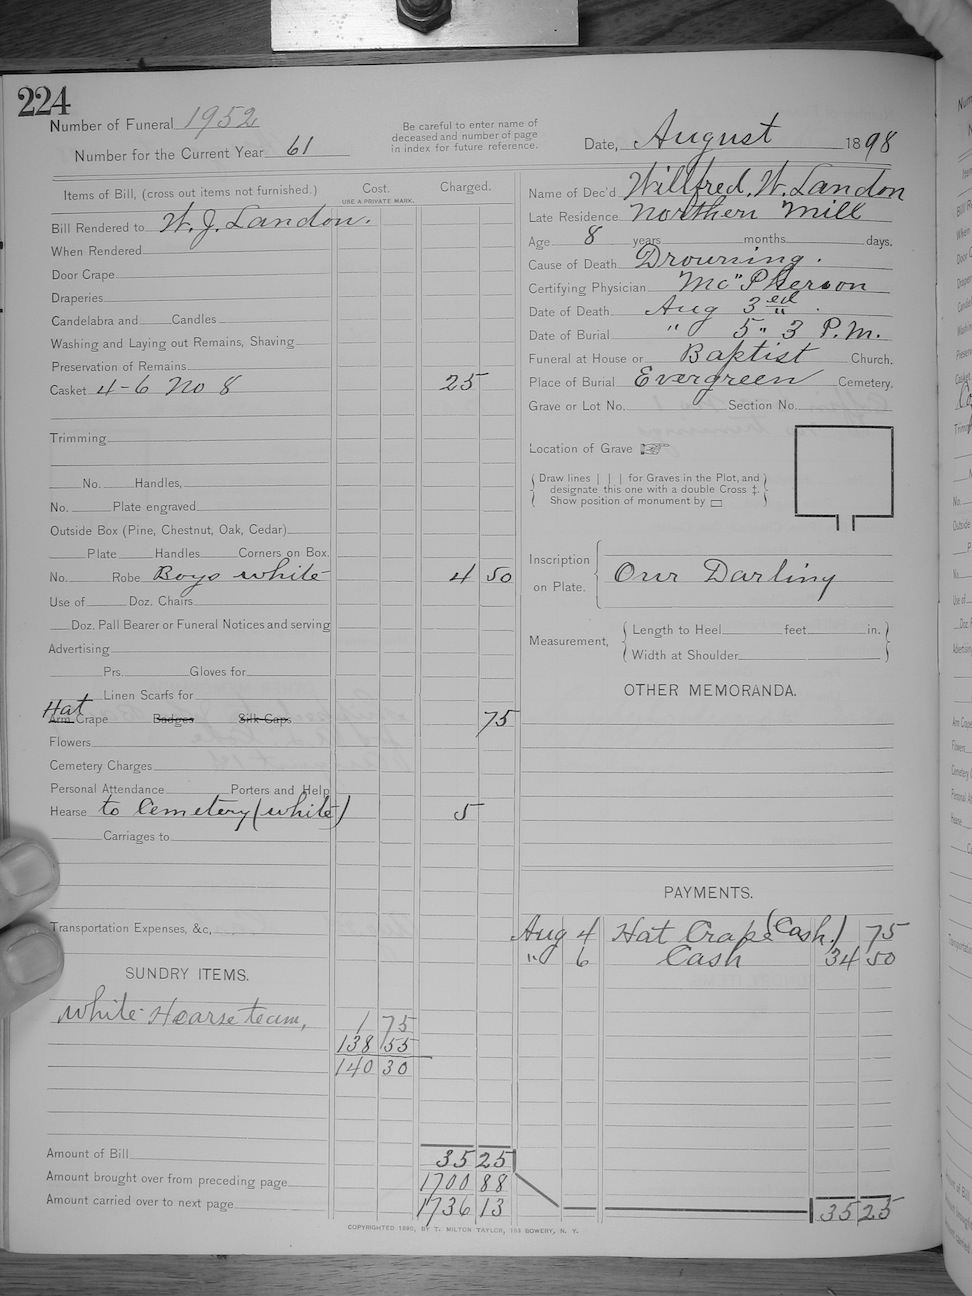 224
Number of Funeral 1952
Number for the Current Year 61
Be careful to enter name of
deceased and number of page
in index for future reference.
Date, August 1898
Items of Bill, (cross out items not furnished.) Cost. Charged.
USE A PRIVATE MARK.
Bill Rendered to W. J. Landon.
When Rendered
Door Crape
Draperies
Candelabra and Candles
Washing and Laying out Remains, Shaving
Preservation of Remains
Casket 4-6 No 8 25
Trimming
No. Handles,
No. Plate engraved
Outside Box (Pine, Chestnut, Oak, Cedar)
Plate Handles Corners on Box.
No. Robe Boys white 4 50
Use of Doz. Chairs
Doz. Pall Bearer or Funeral Notices and serving
Advertising
Prs. Gloves for
Linen Scarfs for
Hat
Arm Crape Badges Silk Caps 75
Flowers
Cemetery Charges
Personal Attendance Porters and Help
Hearse to Cemetery (white) 5
Carriages to
Transportation Expenses, &c,
SUNDRY ITEMS.
White Hearse team, 1 75
138 55
140 30
Amount of Bill 35 25
Amount brought over from preceding page 1700 88
Amount carried over to next page 1736 13
Name of Dec'd Willfred. W. Landon
Late Residence Northern Mill
Age 8 years months days.
Cause of Death Drowning.
Certifying Physician McPherson
Date of Death Aug 3rd.
Date of Burial " 5" 3 P.M.
Funeral at House or Baptist Church.
Place of Burial Evergreen Cemetery.
Grave or Lot No. Section No.
Location of Grave
Draw lines | | | for Graves in the Plot, and
designate this one with a double Cross ‡.
Show position of monument by □
Inscription
on Plate. Our Darling
Measurement, Length to Heel feet in.
Width at Shoulder
OTHER MEMORANDA.
PAYMENTS.
Aug 4 Hat Crape (Cash.) 75
" 6 Cash 34 50
35 25
COPYRIGHTED 1890, BY T. MILTON TAYLOR, 163 BOWERY, N. Y.